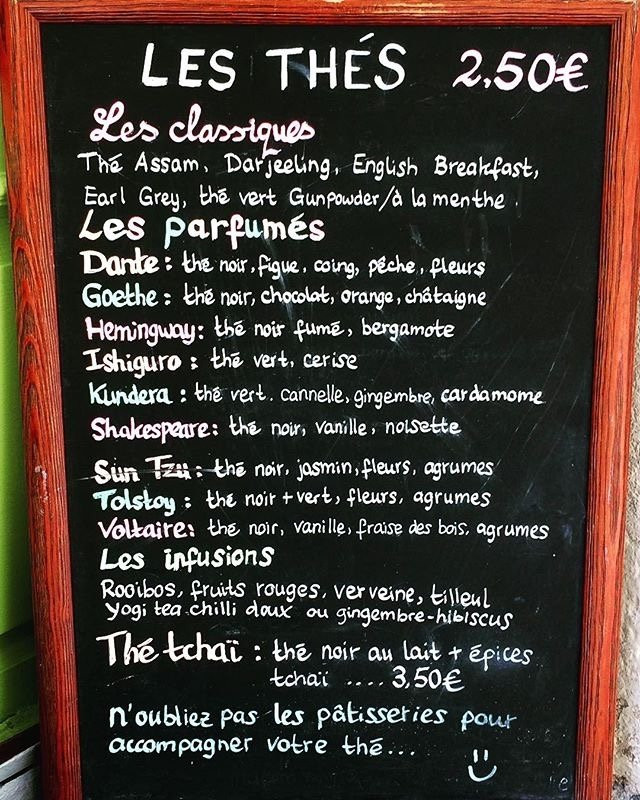 LES THÉS 2,50€
Les classiques
Thé Assam, Darjeeling, English Breakfast,
Earl Grey, thé vert Gunpowder/à la menthe.
Les parfumés
Dante : thé noir, figue, coing, pêche, fleurs
Goethe : thé noir, chocolat, orange, châtaigne
Hemingway: thé noir fumé, bergamote
Ishiguro : thé vert, cerise
Kundera : thé vert. cannelle, gingembre, cardamome
Shakespeare: thé noir, vanille, noisette
Sun Tzu : thé noir, jasmin, fleurs, agrumes
Tolstoy : thé noir + vert, fleurs, agrumes
Voltaire: thé noir, vanille, fraise des bois, agrumes
Les infusions
Rooibos, fruits rouges, verveine, tilleul
Yogi tea chilli doux ou gingembre-hibiscus
Thé tchaï : thé noir au lait + épices
tchaï .... 3,50€
n'oubliez pas les pâtisseries pour
accompagner votre thé...